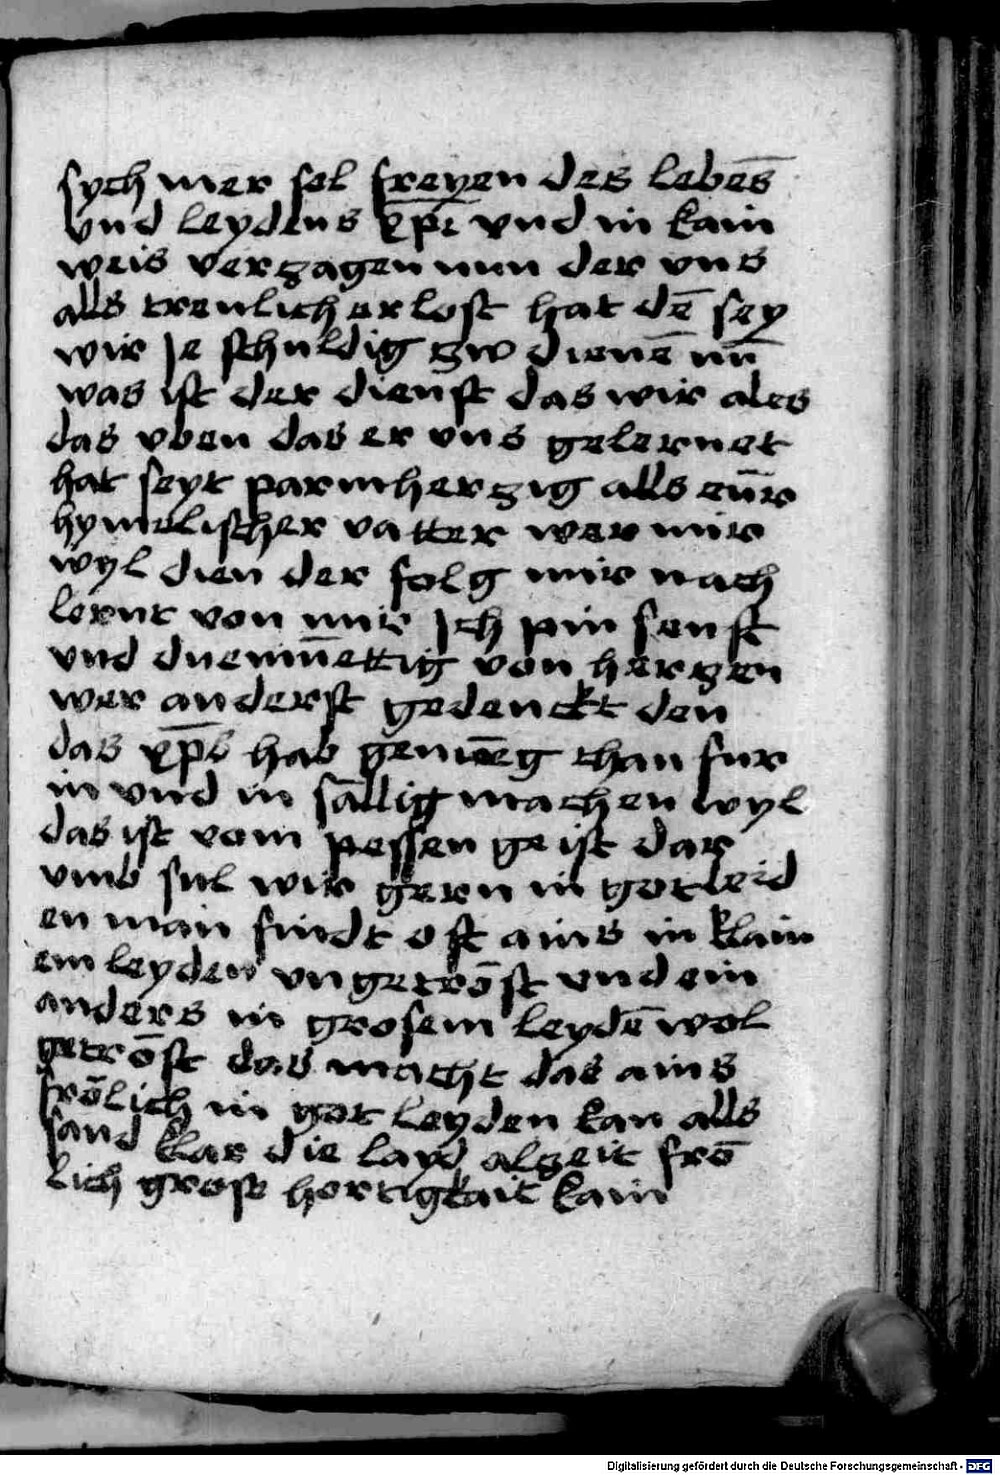 sych mer sel freyen des lebēs
vnd leydens xp̄i vnd in kain
weis verzagen nun der vns
alls treulich erlost hat dē sey
wir je schuldig zw dienē nū
was ist der dienst das wir ales
das vben das er vns gelernet
hat seyt parmherzig alls eūr
hymelischer vatter wer mir
wyl dien der folg mir nach
lernt von mir Ich pin senft
vnd duemūettig von herzen
wer anderst gedenckt den
das xp̄s hab genueg than fur
in vnd in sāllig machen wyl
das ist vom pessen geist dar
vmb sul wir gern in got leid
en man findt oft ains in klain
em leyden vngetrōst vnd ein
anders in grosem leydē wol
getrōst das macht das ains
frōlich in got leyden kan alls
sand klar die layd alzeit frō
lich grose hertigkait kain
Digitalisierung gefördert durch die Deutsche Forschungsgemeinschaft - DFG